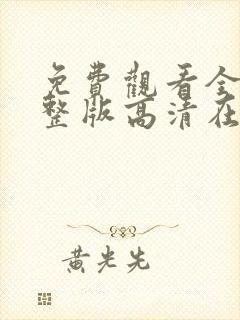 免費觀看全
整版高清在
黃光先